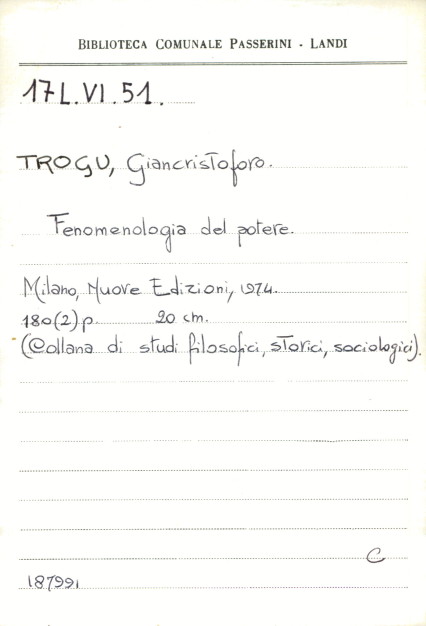 BIBLIOTECA COMUNALE PASSERINI - LANDI
17L.VI.51.
TROGU, Giancristoforo.
Fenomenologia del potere.
Milano, Nuove Edizioni, 1974.
180(2)p. 20 cm.
(Collana di studi filosofici, storici, sociologici).
C
187991